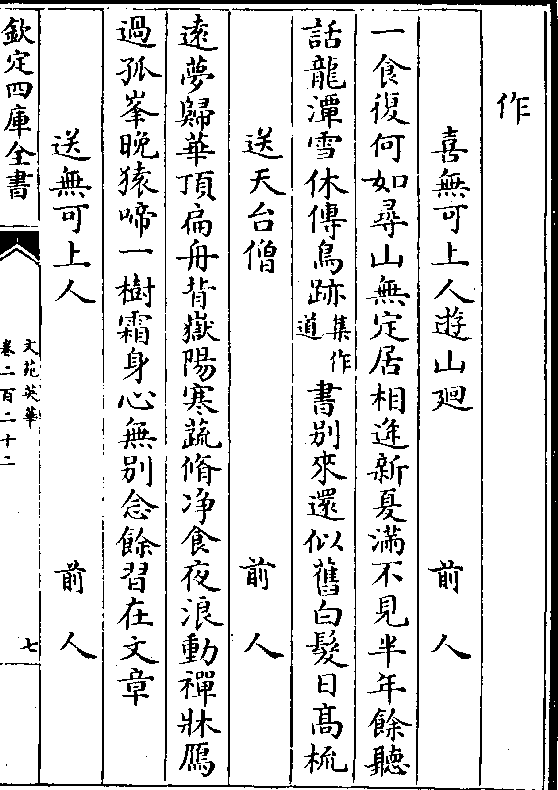 作
喜無可上人遊山廻　前人
一食復何如尋山無定居相逢新夏滿不見半年餘聽
話龍潭雪休傳鳥跡集作道書別來還似舊白髮日髙梳
送天台僧　前人
逺夢歸華頂扁舟背嶽陽寒蔬脩净食夜浪動禪牀鴈
過孤峯曉猿啼一樹霜身心無别念餘習在文章
送無可上人　前人
欽定四庫全書
文苑英華
卷二百二十二
七